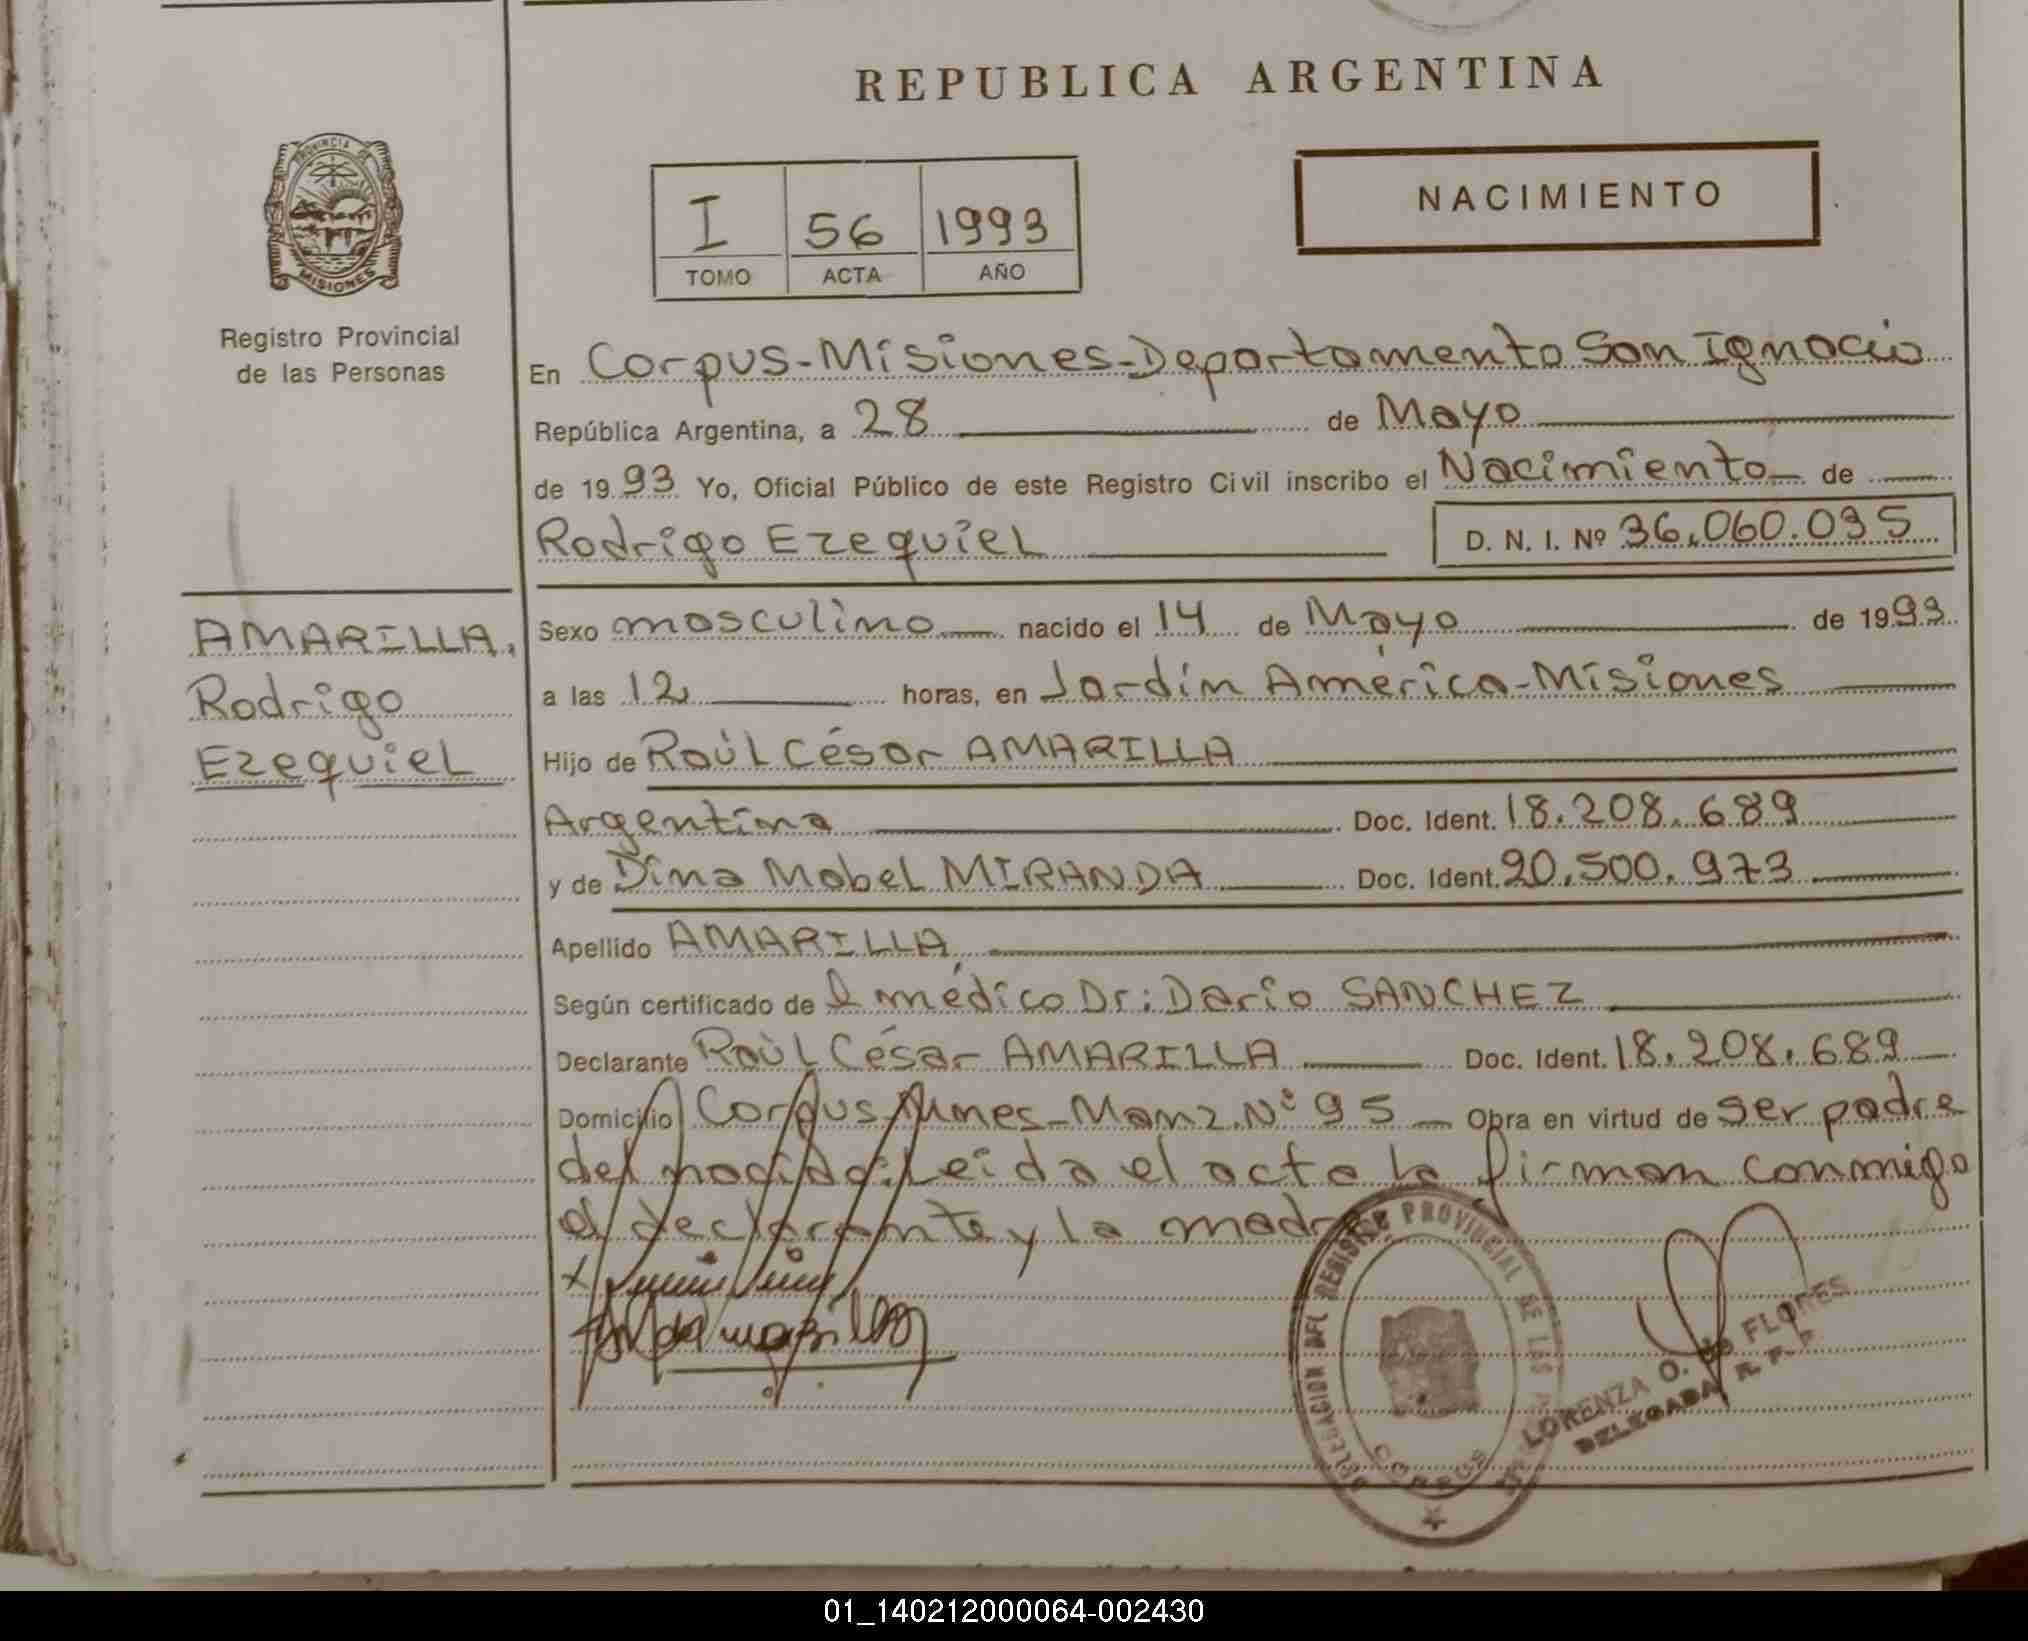 REPUBLICA ARGENTINA
PROVINCIA DE
MISIONES
Registro Provincial
de las Personas
I 56 1993
TOMO ACTA AÑO
NACIMIENTO
En Corpus-Misiones-Departamento San Ignacio
República Argentina, a 28 de Mayo
de 1993 Yo, Oficial Público de este Registro Civil inscribo el Nacimiento de
Rodrigo Ezequiel D. N. I. Nº 36.060.035
AMARILLA,
Rodrigo
Ezequiel
Sexo masculino nacido el 14 de Mayo de 1993
a las 12 horas, en Jardín América-Misiones
Hijo de Raúl César AMARILLA
Argentina Doc. Ident. 18.208.689
y de Dina Mabel MIRANDA Doc. Ident. 20.500.973
Apellido AMARILLA
Según certificado de l médico Dr: Darío SANCHEZ
Declarante Raúl César AMARILLA Doc. Ident. 18.208.689
Domicilio Corpus Mnes-Manz. Nº 95 Obra en virtud de ser padre
del nacido. Leída el acta la firman conmigo
el declarante y la madre
DELEGACION DEL REGISTRO PROVINCIAL DE LAS
CORPUS
LORENZA O. de FLORES
DELEGADA R. P. P.
01_140212000064-002430